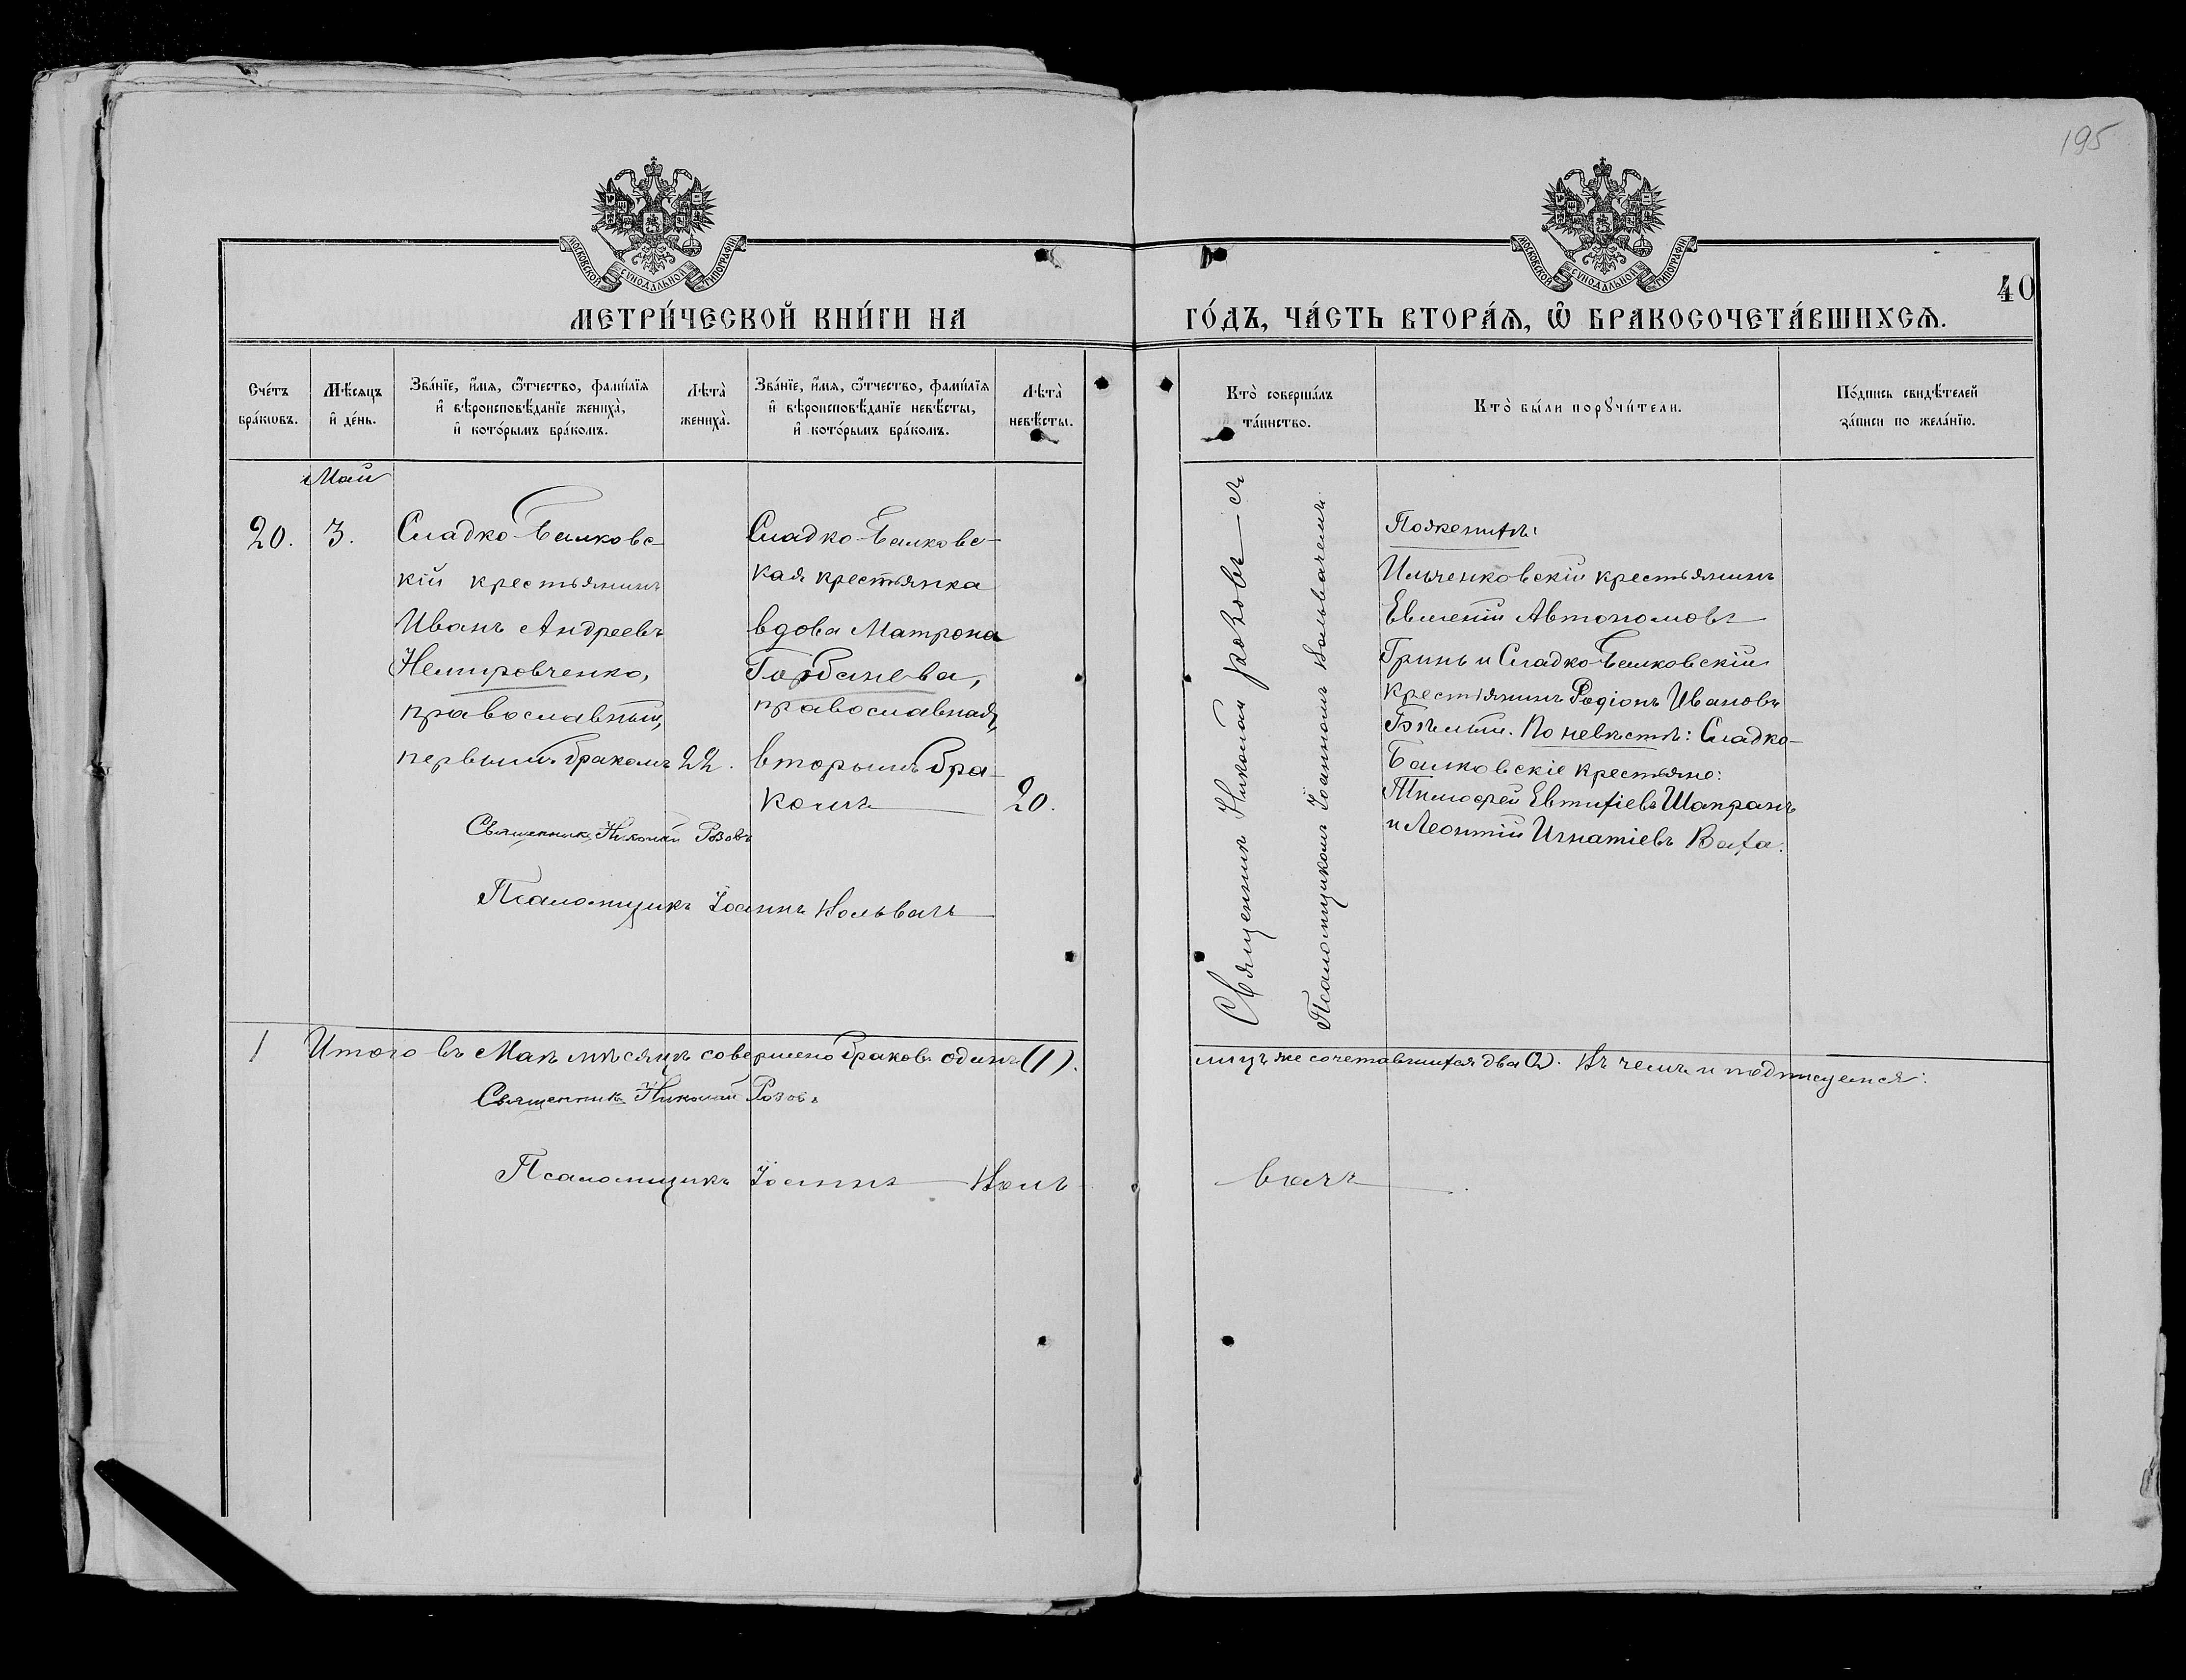 195
МОСКОВСКОЙ СѴНОДАЛЬНОЙ ТИПОГРАФІИ
МОСКОВСКОЙ СѴНОДАЛЬНОЙ ТИПОГРАФІИ
40
МЕТРИ́ЧЕСКОЙ КНИ́ГИ НА
ГО́ДЪ, ЧА́СТЬ ВТОРА́Ѧ, Ѡ҆ БРАКОСОЧЕТА́ВШИХСѦ.
Сче́тъ
бра́кѡвъ.
Мѣ́сѧцъ
и҆ де́нь.
Зва́нїе, и҆́мѧ, ѻ҆́тчество, фами́лїѧ
и҆ вѣроисповѣ́данїе жениха̀,
и҆ кото́рымъ бра́комъ.
Лѣта̀
жениха̀.
Зва́нїе, и҆́мѧ, ѻ҆́тчество, фами́лїѧ
и҆ вѣроисповѣ́данїе невѣ́сты,
и҆ кото́рымъ бра́комъ.
Лѣта̀
невѣ́сты.
Кто̀ соверша́лъ
та́инство.
Кто̀ бы́ли порꙋчи́тели.
По́дпись свидѣ́телей
за́писи по жела́нїю.
Май
20.
3.
Сладко-Балковс-
кій крестьянинъ
Иванъ Андреевъ
Немировченко,
православный,
первымъ бракомъ
22.
Сладко-Балковс-
кая крестьянка
вдова Матрона
Горбанева,
православная,
вторымъ бра-
комъ
20.
Священникъ Николай Розовъ
Псаломщикъ Іоаннъ Кольвачъ
Священникъ Николай Розовъ съ
Псаломщикомъ Іоанномъ Кольвачемъ.
По женихѣ:
Ильченковскій крестьянинъ
Евменій Автономовъ
Гринь и Сладко-Балковскій
крестьянинъ Родіонъ Ивановъ
Бѣлый. По невѣстѣ: Сладко-
Балковскіе крестьяне:
Тимофей Евтихіевъ Шапранъ
и Леонтій Игнатіевъ Ваха.
1 Итого въ Маѣ мѣсяцѣ совершено браковъ одинъ (1).
лицъ же сочетавшихся два (2). Въ чемъ и подписуемся:
Священникъ Николай Розовъ
Псаломщикъ Іоаннъ Коль
вачъ